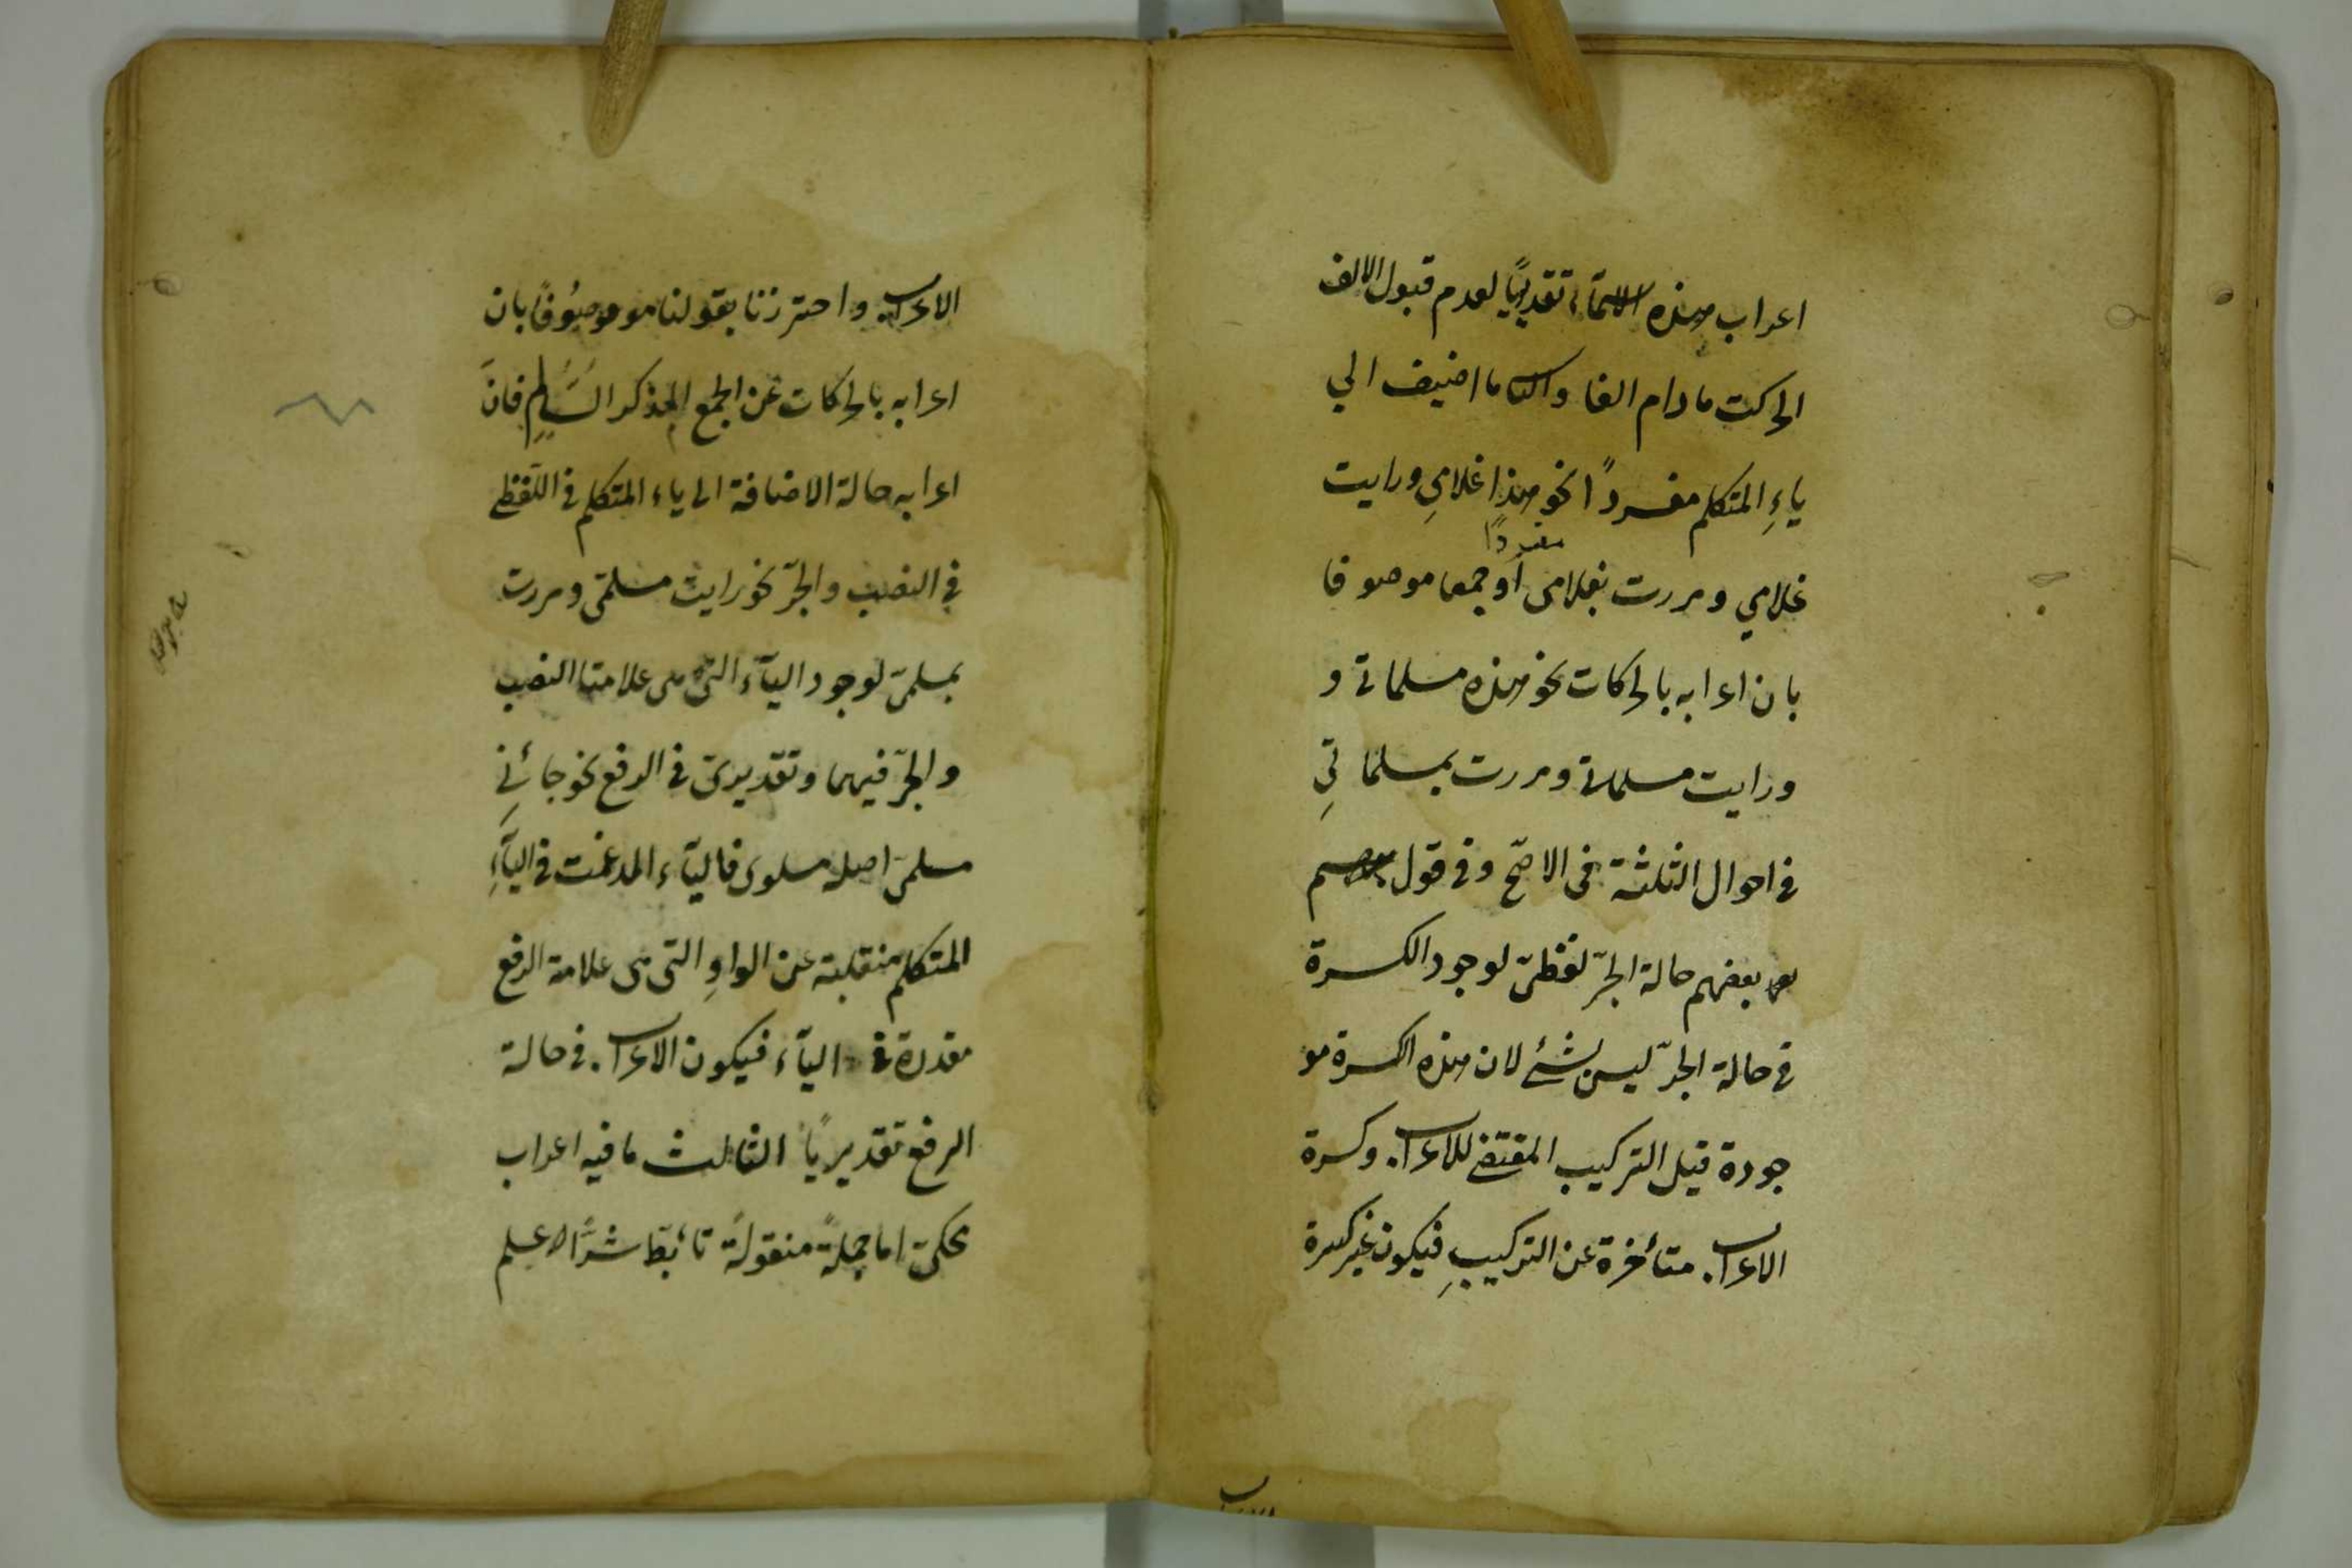 اعراب هذه الاسمآء تقديريًا لعدم قبول الالف
الحركت ما دام الفا والثا ما اضيف الي
ياءِ المتكلم مفردًا نحو هذا غلامىِ ورايت
مفردًا
غلامي ومررت بغلامى او جمعا موصوفا
بان اعرابه بالحركات نحو هذه مسلماتي و
ورايت مسلماتي ومررت بمسلماتيِ
في احوال الثلثة في الاصّح وفي قول
بعضهم حالة الجرّ لفظىّ لوجود الكسرة
في حالة الجرّ ليس بشئ لان هذه الكسرة مو
جودة قبل التركيب المقتضى للاعراب وكسرة
الاعراب متأخرة عن التركيبِ فيكون غير كسرة
الاعراب
الاعراب واحترزنا بقولنا موصُوفًا بان
اعرابه بالحركات عن الجمع المذكر السَّالِم فانَ
اعرابه حالة الاضافة الى ياء المتكلم في اللّفظى
في النصب والجرّ نحو رايت مسلمّى ومررت
بمسلمىّ لوجود اليآء التى هى علامتا النصب
والجرّ فيهما وتقديرىّ في الرفع نحو جائنِي
مسلمىّ اصله مسلموى فاليآء المدغمت في اليآءِ
المتكلم منقلبة عن الواوِ التى هى علامة الرفع
مقدرة في اليآء فيكون الاعراب في حالة
الرفع تقديريًا الثالث ما فيه اعراب
محكىّ اما جملةً منقولةً تأبّط شرًّا علم